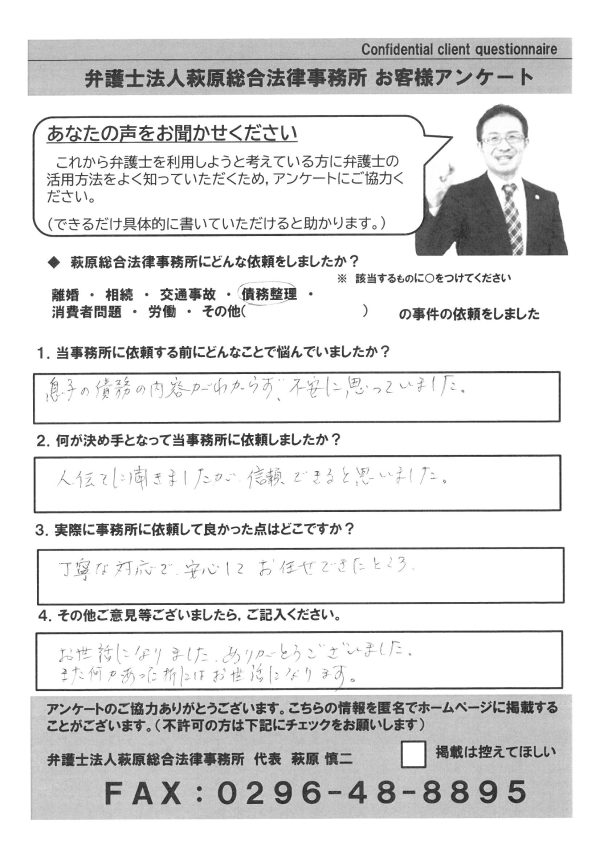 Confidential client questionnaire
弁護士法人萩原総合法律事務所 お客様アンケート
あなたの声をお聞かせください
これから弁護士を利用しようと考えている方に弁護士の
活用方法をよく知っていただくため，アンケートにご協力く
ださい。
（できるだけ具体的に書いていただけると助かります。）
◆ 萩原総合法律事務所にどんな依頼をしましたか？
※ 該当するものに○をつけてください
離婚 ・ 相続 ・ 交通事故 ・ 債務整理 ・
消費者問題 ・ 労働 ・ その他（　　　　　　　　） の事件の依頼をしました
1．当事務所に依頼する前にどんなことで悩んでいましたか？
息子の債務の内容がわからず、不安に思っていました。
2．何が決め手となって当事務所に依頼しましたか？
人伝てに聞きましたが、信頼できると思いました。
3．実際に事務所に依頼して良かった点はどこですか？
丁寧な対応で、安心して お任せできたところ。
4．その他ご意見等ございましたら、ご記入ください。
お世話になりました。ありがとうございました。
また何かあった折にはお世話になります。
アンケートのご協力ありがとうございます。こちらの情報を匿名でホームページに掲載する
ことがございます。（不許可の方は下記にチェックをお願いします）
弁護士法人萩原総合法律事務所 代表 萩原 慎二
掲載は控えてほしい
ＦＡＸ：０２９６-４８-８８９５